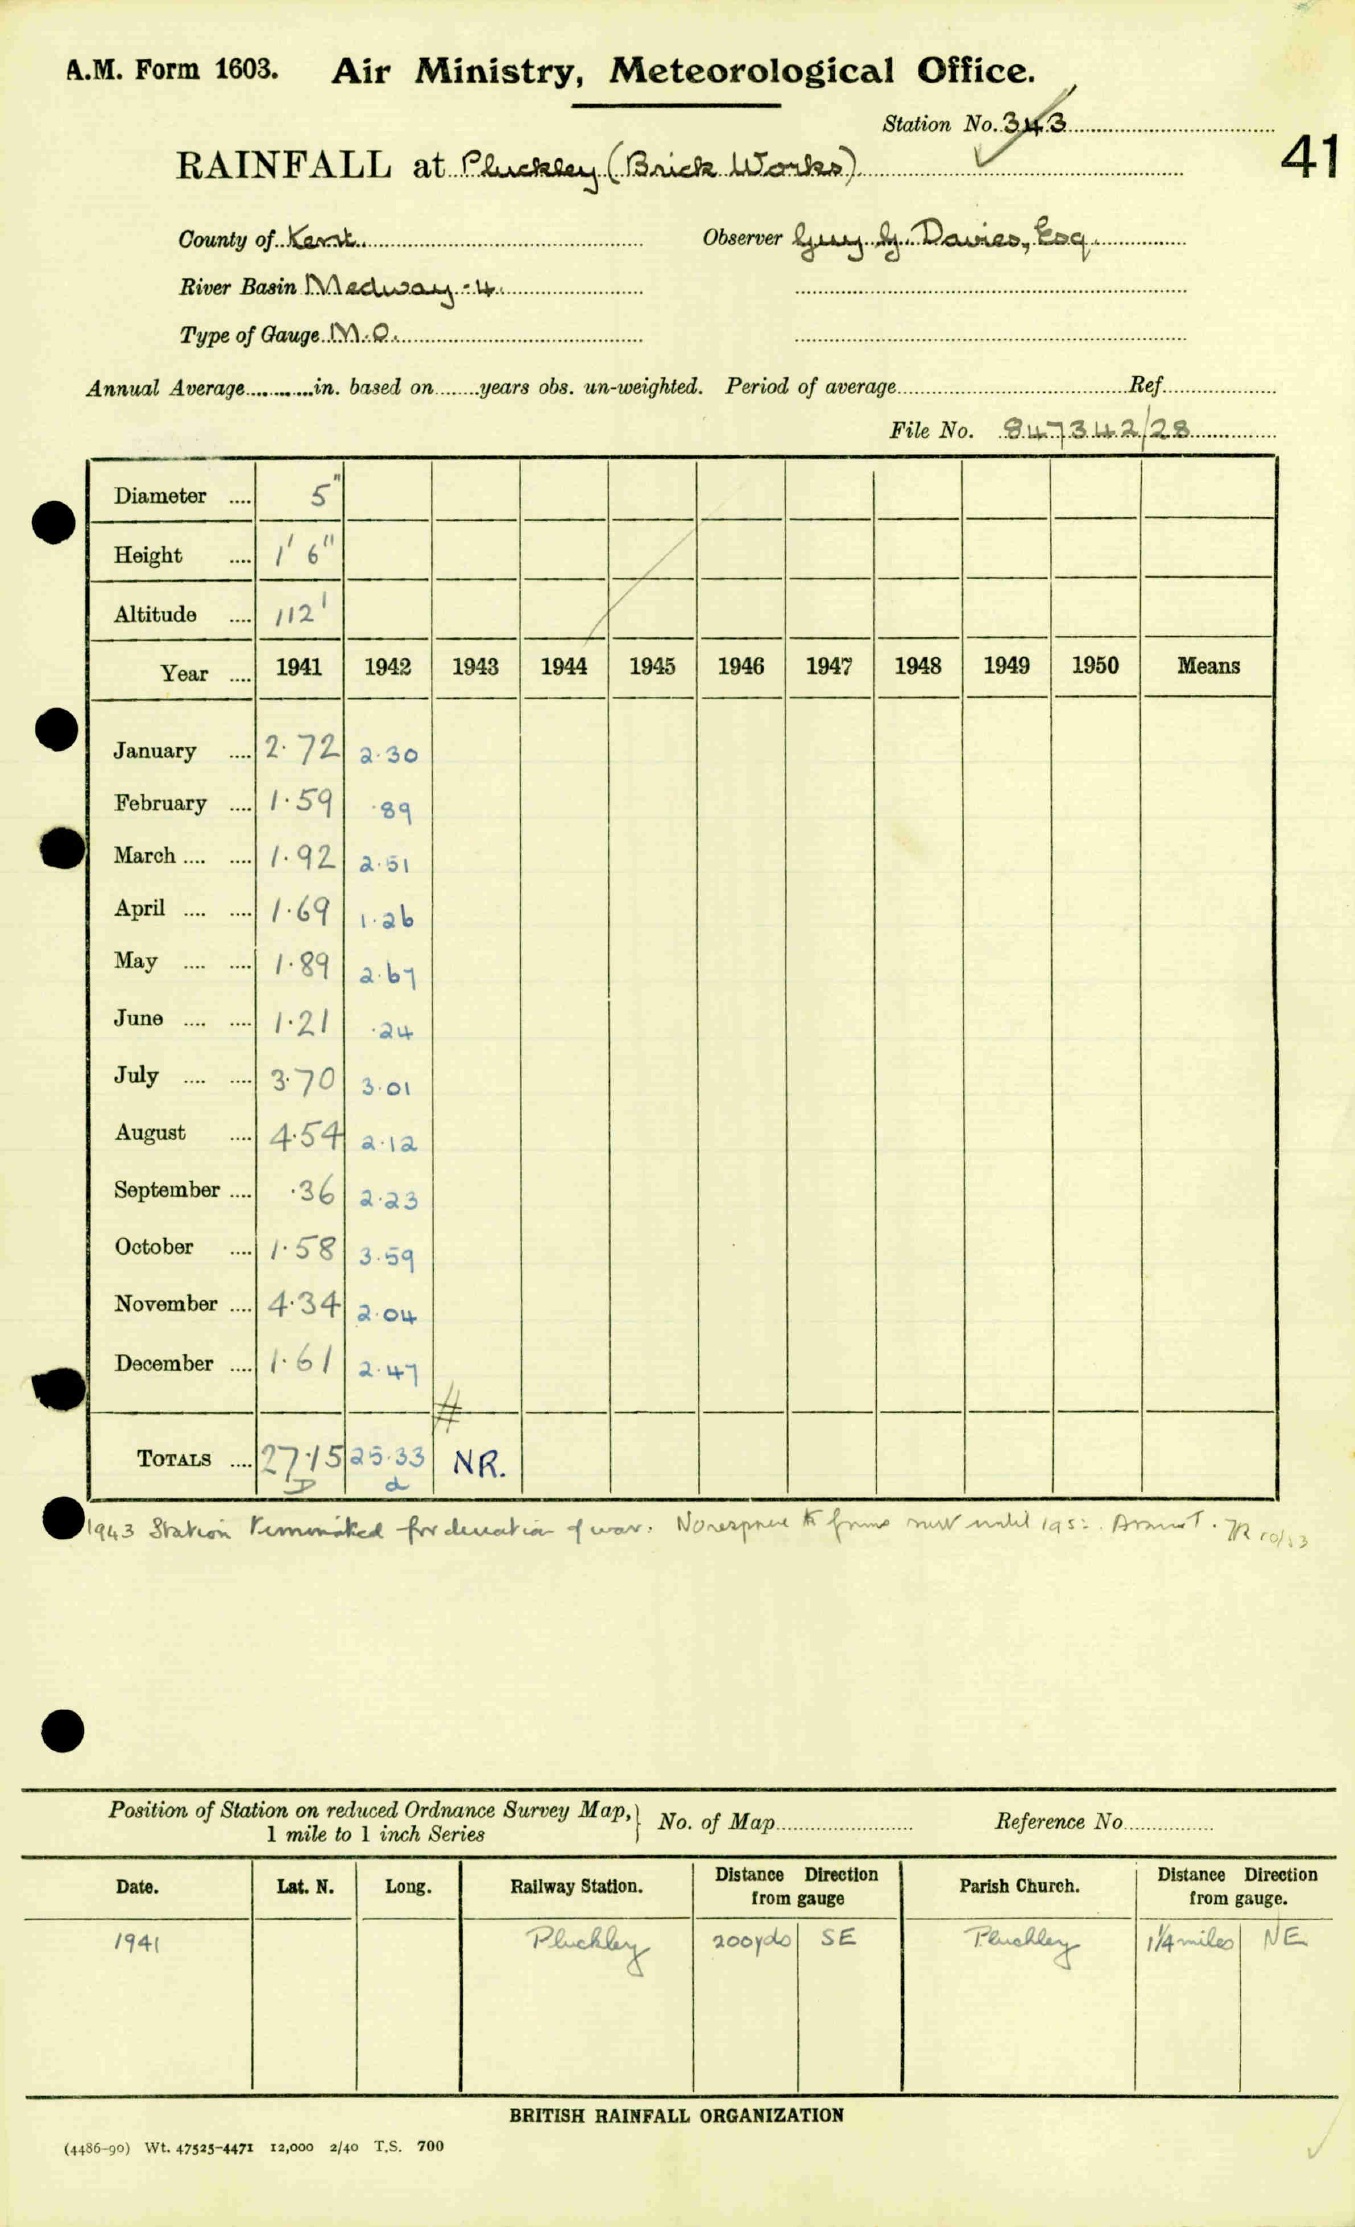 A.M. Form 1603. Air Ministry, Meteorological Office.
Station No. 343
41
RAINFALL at Pluckley (Brick Works)
County of Kent Observer Guy G. Davies, Esq.
River Basin Medway - 4
Type of Gauge M.O.
Annual Average in. based on years obs. un-weighted. Period of average Ref.
File No. 847342/28
Diameter .... 5"
Height .... 1' 6"
Altitude .... 112'
Year .... 1941 1942 1943 1944 1945 1946 1947 1948 1949 1950 Means
January .... 2.72 2.30
February .... 1.59 .89
March .... .... 1.92 2.51
April .... .... 1.69 1.26
May .... .... 1.89 2.67
June .... .... 1.21 .24
July .... .... 3.70 3.01
August .... 4.54 2.12
September .... .36 2.23
October .... 1.58 3.59
November .... 4.34 2.04
December .... 1.61 2.47
TOTALS .... 27.15 25.33 NR.
D d
1943 Station terminated for duration of war. No response to forms sent until
Position of Station on reduced Ordnance Survey Map, 1 mile to 1 inch Series } No. of Map Reference No.
Date. Lat. N. Long. Railway Station. Distance Direction from gauge Parish Church. Distance Direction from gauge.
1941 Pluckley 200yds SE Pluckley 1¼ miles NE
BRITISH RAINFALL ORGANIZATION
(4486-90) Wt. 47525-4471 12,000 2/40 T.S. 700